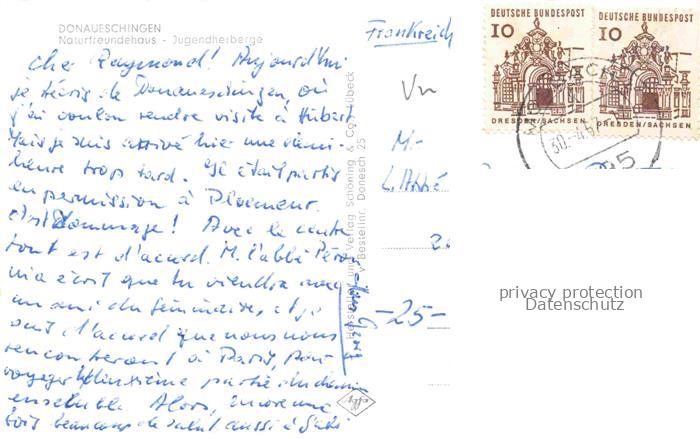 DONAUESCHINGEN
Naturfreundehaus - Jugendherberge
Cher Raymond! Aujourd'hui
je t'écris de Donaueschingen, où
j'ai voulou rendre visite à Hubert
Mais je suis arrivé hier une demi-
heure trop tard. Il était parti
en permission à Ploemeur.
C'est dommage! Avec le
tout est d'accord. M. l'abbé
m'a écrit que tu viendra avec
un ami du séminaire, et je
suis d'accord que nous nous
rencontrerons à Paris, pour
voyager la partie du chemin
ensemble. Alors, encore une
fois beaucoup de salut aussi à
Hersteller und Verlag Schöning & Co., Lübeck
Bestellnr. Donesch 25
-25-
Frankreich
M.
L'Abbé
DEUTSCHE BUNDESPOST
10
DRESDEN/SACHSEN
DEUTSCHE BUNDESPOST
10
DRESDEN/SACHSEN
privacy protection
Datenschutz